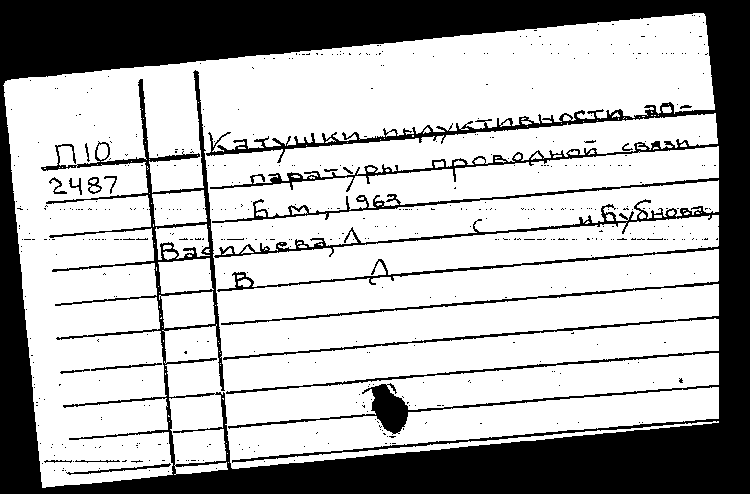 П10 Катушки индуктивности ап-
2487 паратуры проводной связи.
Б.м., 1963
Васильева, Л с и, Бубнова,
В Д